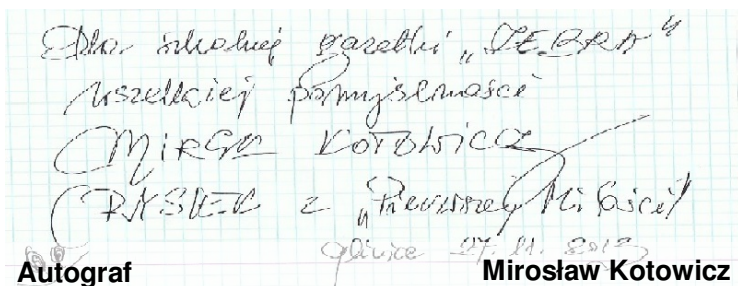 Dla szkolnej gazetki „ZEBRA”
wszelkiej pomyślności
MIREK KOTOWICZ
RYSIEK z „Pierwszej Miłości”
Gliwice 27. 11. 2013
Autograf Mirosław Kotowicz